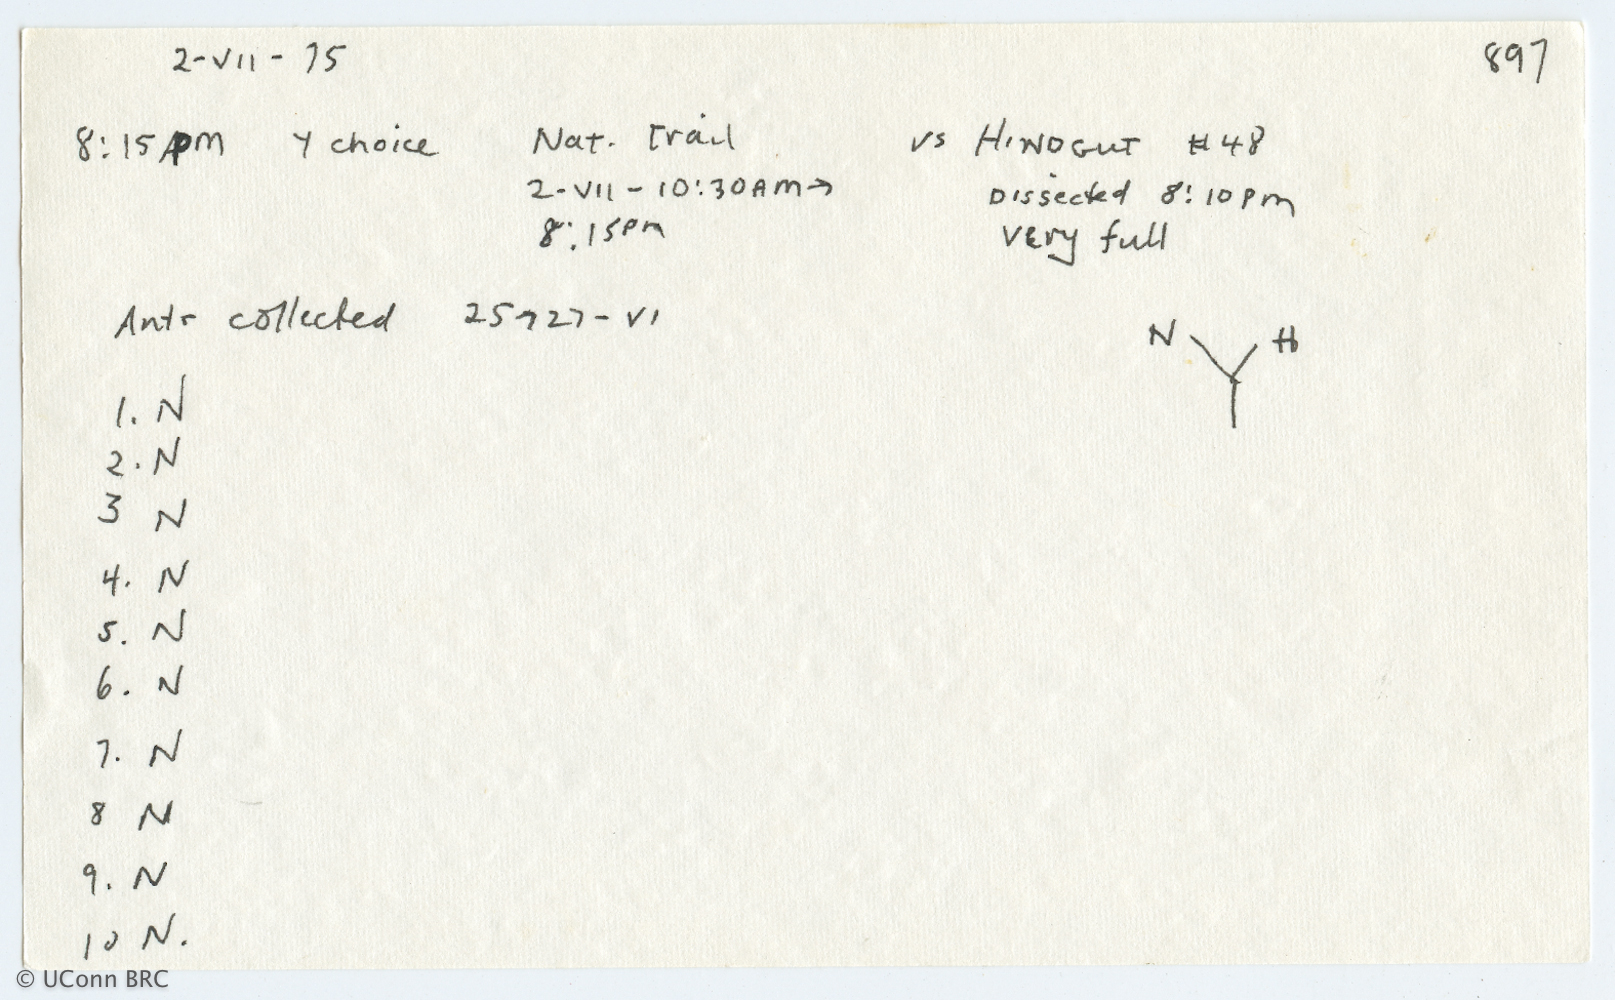 2-VII-75 897
8:15pm Y choice Nat. Trail vs HINDGUT #48
2-VII-10:30AM→ Dissected 8:10pm
8:15pm very full
Ants collected 25→27-VI
N H
1. N
2. N
3 N
4. N
5. N
6. N
7. N
8 N
9. N
10 N.
© UConn BRC